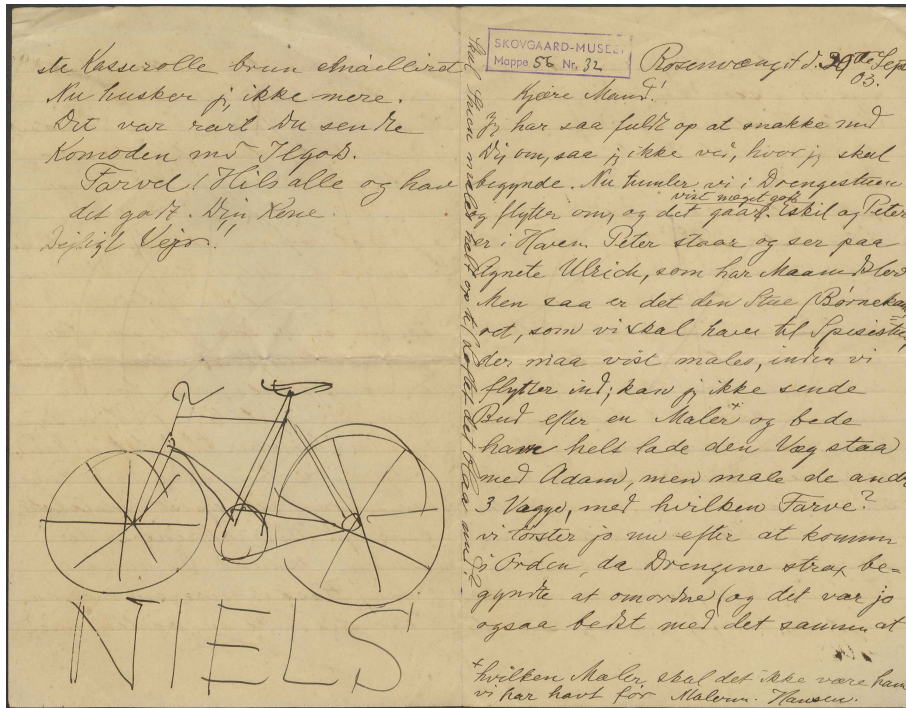 ste Kasserolle brun emailleret
Nu husker jeg ikke mere.
Det var rart Du sendte
Komoden med Ilgods.
Farvel! Hils alle og hav
det godt. Din Kone.
Dejligt Vejr!
NIELS
SKOVGAARD-MUSEET
Mappe 56 Nr. 32
Rosenvænget d. 29de Sept
03.
Kjære Mand!
Jeg har saa fuldt op at snakke med
Dig om, saa jeg ikke ved, hvor jeg skal
begynde. Nu tumler vi i Drengestuen
vist meget godt
og flytter om, og det gaar. Eskil og Peter
er i Haven. Peter staar og ser paa
Agnete Ulrich, som har
Men saa er det den Stue (Børnekam
ret, som vi skal have til Spisestue,
der maa vist males, inden vi
flytter ind; kan jeg ikke sende
Bud efter en Maler+ og bede
ham helst lade den Væg staa
med Adam, men male de andre
3 Vægge, med hvilken Farve?
vi tørster jo nu efter at komme
i Orden, da Drengene strax be=
gyndte at omordne (og det var jo
ogsaa bedst med det samme, at
+hvilken Maler, skal det ikke være ham
vi har havt før Malerm. Hansen.
Skal Stuen males helt op til Loftet det blaa med?